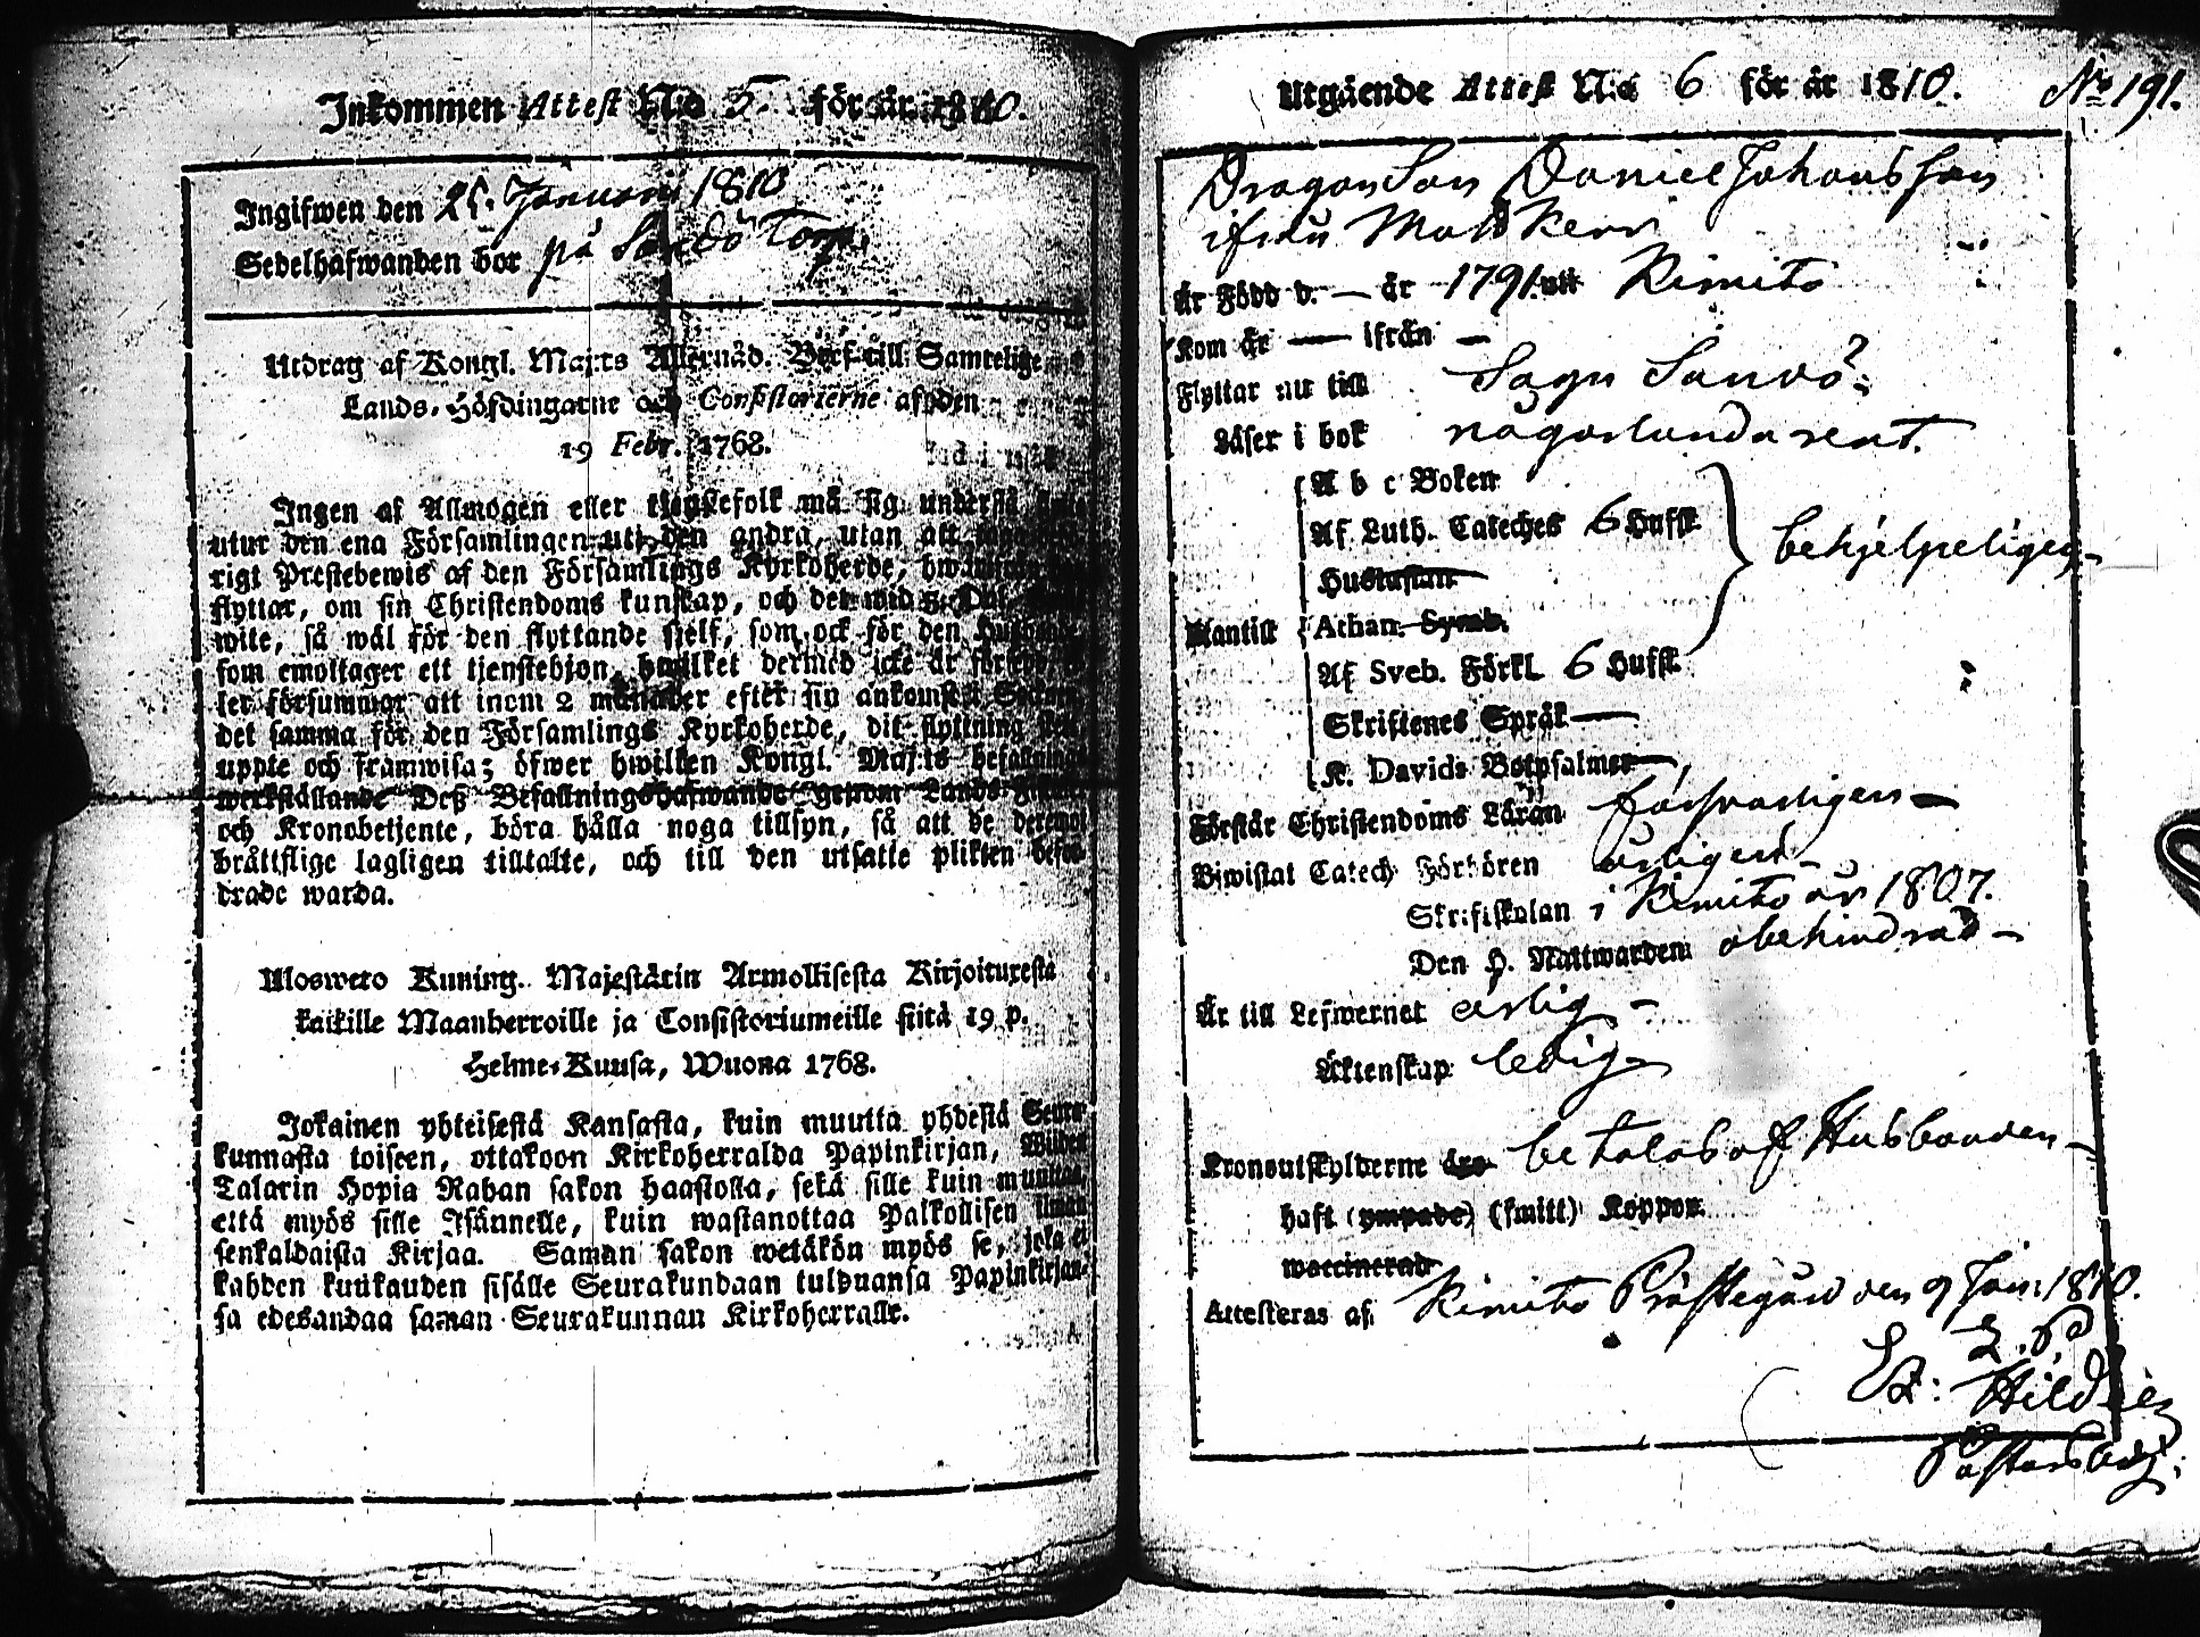 Inkommen Attest N:o 5. för år 1810.
Ingifwen den 25. Januari 1810
Sedelhafwanden bor på Sandö Torp.
Utdrag af Kongl. Maj:ts Allernåd. Bref till Samtelige
Lands-Höfdingarne och Consistorierne af den
19 Febr. 1768.
Ingen af Allmogen eller tjenstefolk må sig understå
utur den ena Församlingen uti den andra, utan att
rigt Prestebewis af den Församlings Kyrkoherde,
flyttar, om sin Christendoms kunskap, och det wid
wite, så wäl för den flyttande sjelf, som ock för den
som emottager ett tjenstehjon, hwilket dermed icke är
ler försummar att inom 2 månader efter sin ankomst
det samma för den Församlings Kyrkoherde, dit flyttning
uppte och framwisa; öfwer hwilken Kongl. Maj:ts befallnings
werkställande Deß Befallningshafwande genom Lands-
och Kronobetjente, böra hålla noga tillsyn, så att de deremot
bråttslige lagligen tilltalte, och till den utsatte plikten befor-
drade warda.
Uloswero Kuning. Majestätin Armollisesta Kirjoituxesta
kaikille Maanherroille ja Consistoriumeille siitä 19 p.
Helme-Kuusa, Wuona 1768.
Jokainen yhteisestä Kansasta, kuin muutta yhdestä Seura-
kunnasta toiseen, ottakoon Kirkoherralda Papinkirjan, Wiiden
Talarin Hopia Rahan sakon haastolla, sekä sille kuin muuttaa,
että myös sille Isännelle, kuin wastanottaa Palkollisen ilman
senkaldaista Kirjaa. Saman sakon wetäkön myös se, joka ei
kahden kuukauden sisälle Seurakundaan tulduansa Papinkirjan-
sa edesandaa saman Seurakunnan Kirkoherralle.
Utgående Attest N:o 6 för år 1810. No 191.
Dragon Son Daniel Johansson
ifrån
Är Född d. — år 1791. uti Kimito
Kom år — ifrån —
Flyttar nu till Sagu Sandö.
Läser i bok någorlunda rent.
A b c Boken
Af Luth. Cateches 6 Hufst. behjelpeligen
Hustaflan
Utantill Athan. Symb.
Af Sveb. Förkl. 6 Hufst.
Skriftenes Språk —
K. Davids Botpsalmer —
Förstår Christendoms Läran försvarligen —
Biwistat Catech. Förhören årligen —
Skriftskolan i Kimito år 1807.
Den H. Nattwarden obehindrad —
Är till Lefwernet ärlig —
Äktenskap ledig
Kronoutskylderne äro betalas af Husbonden —
haft (ympade) (smitt) Koppor
waccinerad
Attesteras af. Kimito Prästegård den 9 Jan: 1810.
Hildeen
Pastors Adj: